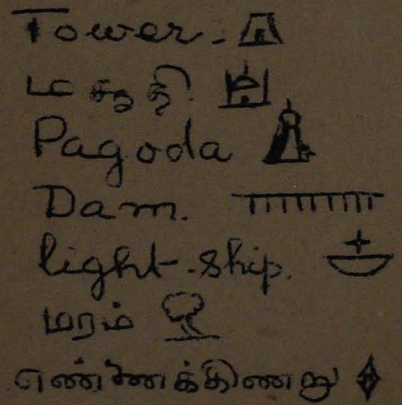 Tower.
மசூதி.
Pagoda
Dam.
light-ship.
மரம்
எண்ணைக்கிணறு